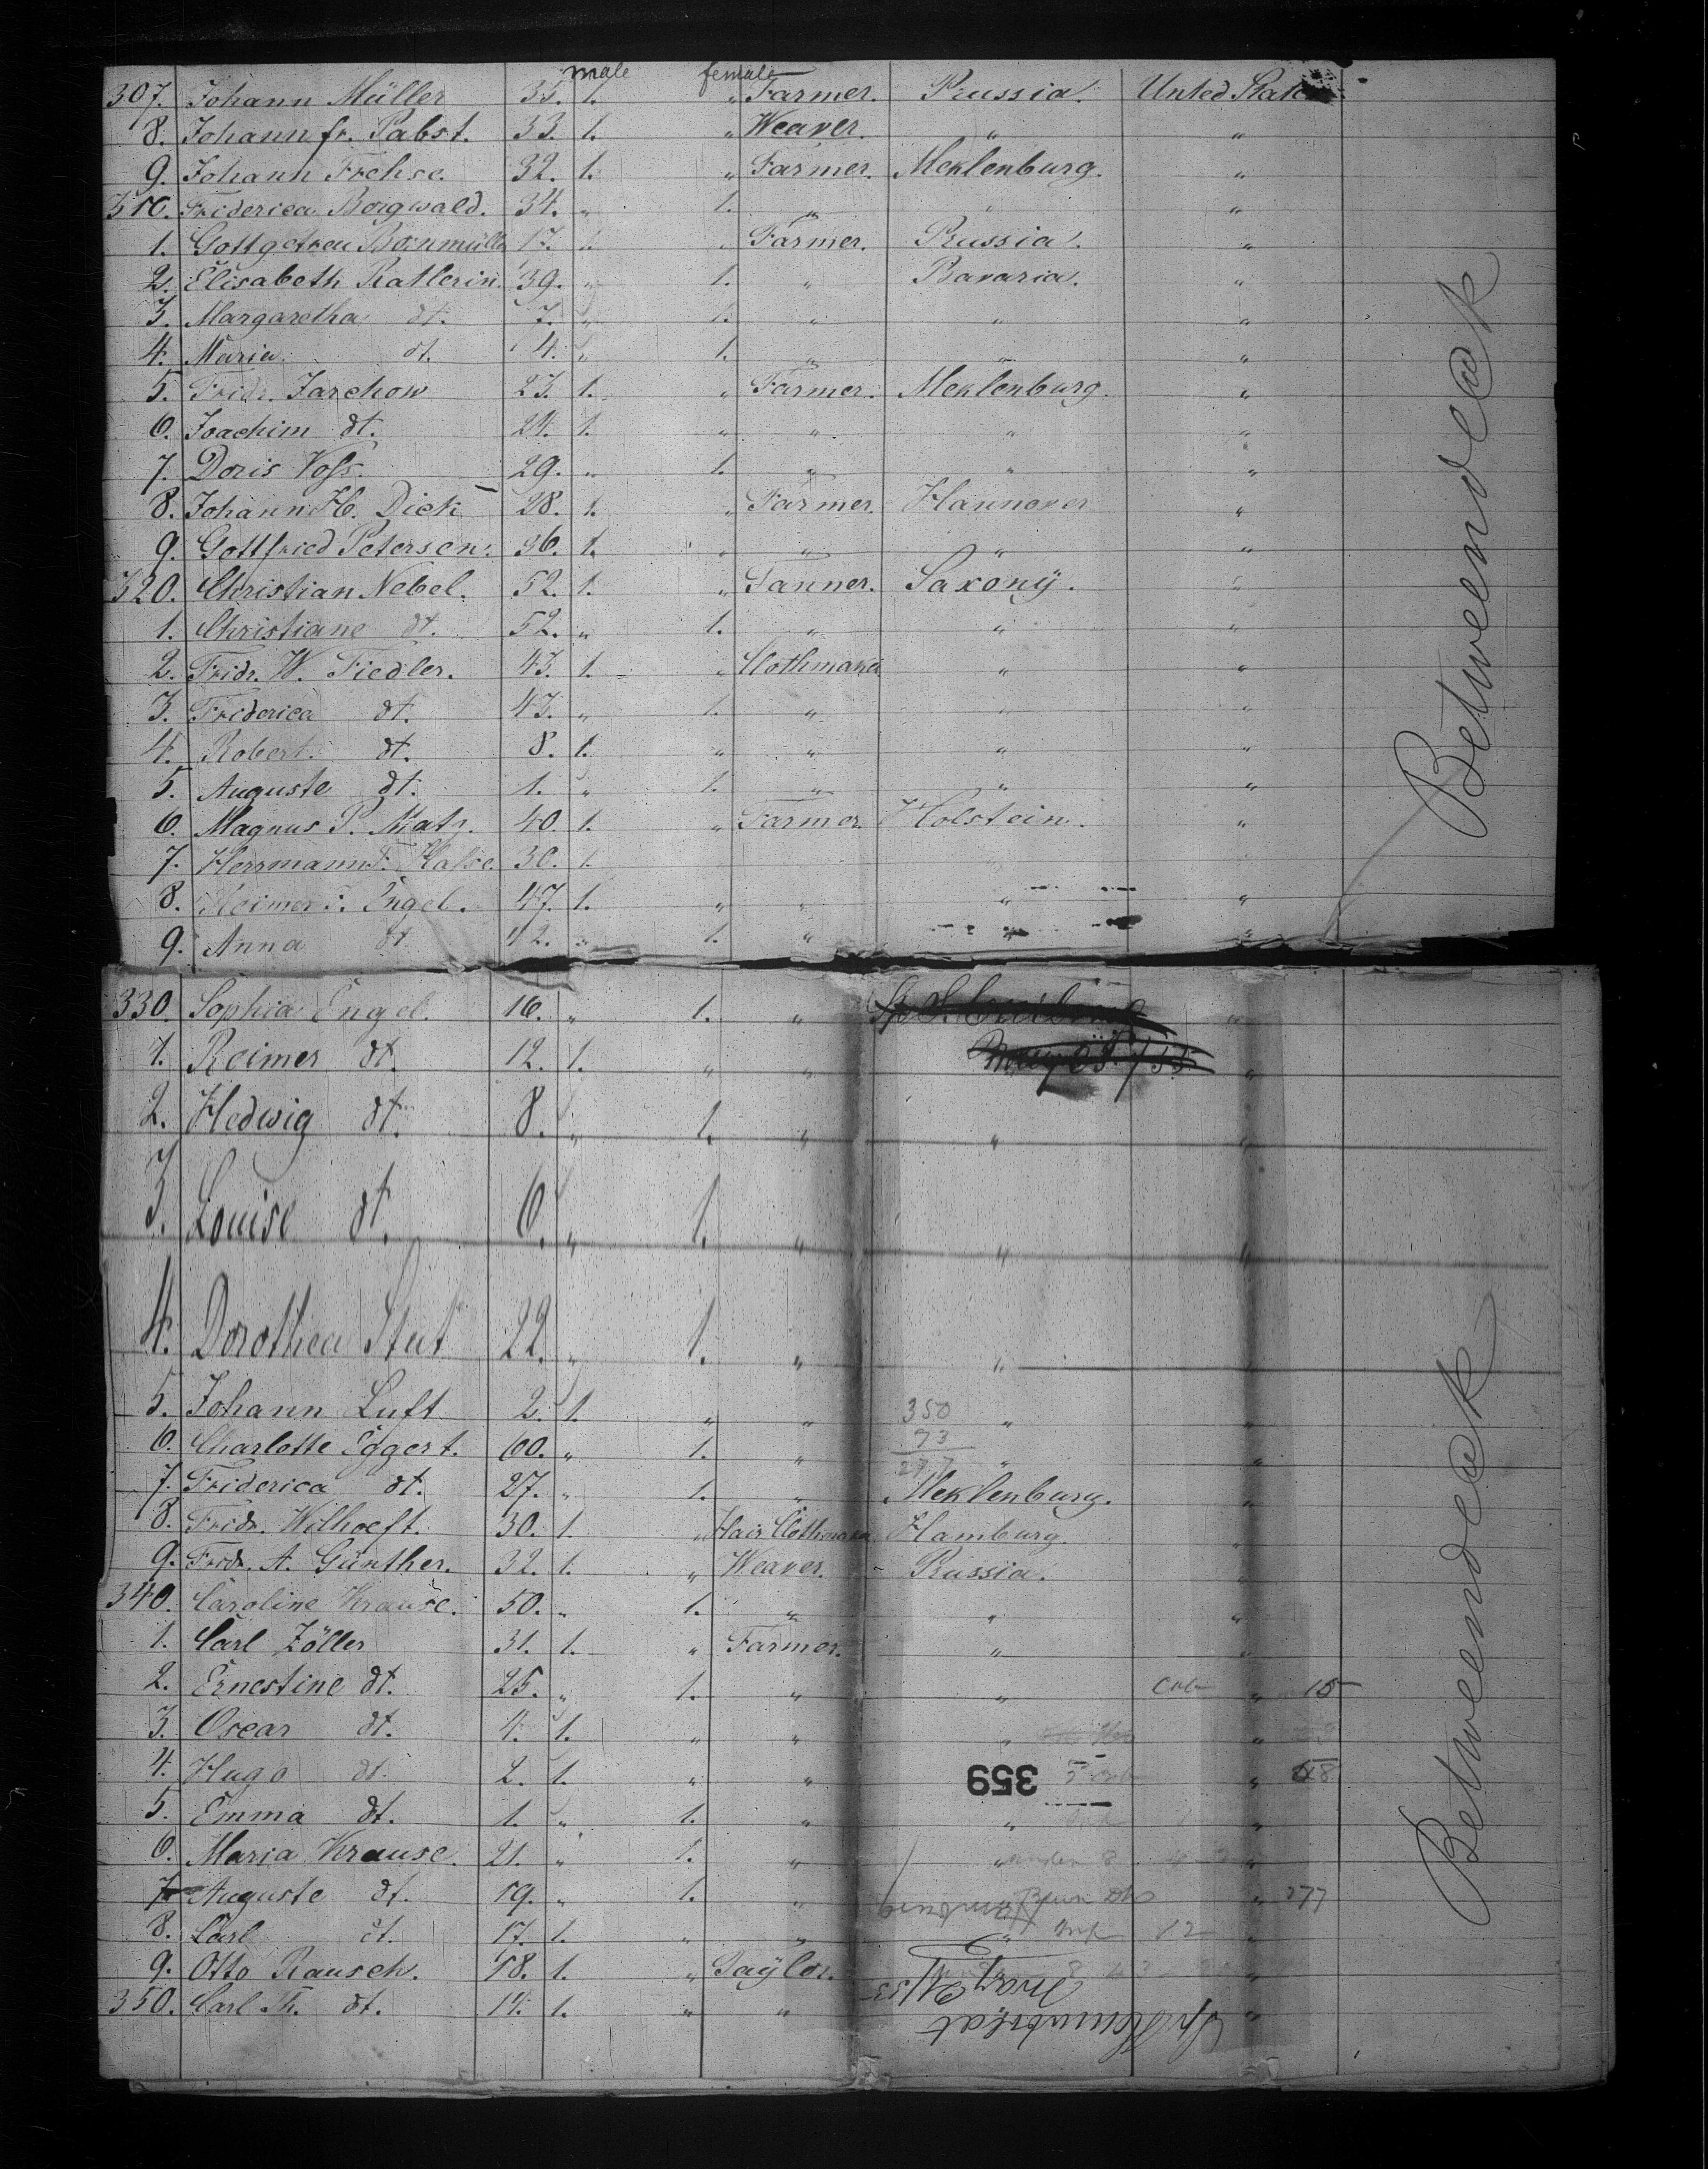 male female
307. Johann Müller 35. 1. " Farmer. Prussia. United States
8. Johann fr. Pabst. 33. 1. " Weaver. " "
9. Johann Frehse. 32. 1. " Farmer. Meklenburg. "
310. Friderica Borgwald. 34. " 1. " " "
1. Gottgetreu Bornmüller 17. 1. " Farmer. Prussia. "
2. Elisabeth Ratlerin. 39. " 1. " Bavaria. "
3. Margaretha dt. 7. " 1. " " "
4. Maria dt. 4. " 1. " " "
5. Fridr. Jarchow 23. 1. " Farmer. Meklenburg. "
6. Joachim dt. 24. 1. " " " "
7. Doris Voss. 29. " 1. " " "
8. Johann H. Dick 28. 1. " Farmer. Hannover "
9. Gottfried Petersen. 36. 1. " " " "
320. Christian Nebel. 52. 1. " Tanner. Saxony. "
1. Christiane dt. 52. " 1. " " "
2. Fridr. W. Fiedler. 43. 1. " Clothmaker " "
3. Friderica dt. 43. " 1. " " "
4. Robert dt. 8. 1. " " " "
5. Auguste dt. 1. " 1. " " "
6. Magnus P. Matz. 40. 1. " Farmer. Holstein. "
7. Herrmann F. 30. 1.
8. Reimer J. Engel. 47. 1. " " " "
9. Anna dt 42. " 1. " " "
330. Sophia Engel. 16. " 1. " "
1. Reimer dt. 12. 1. " " "
2. Hedwig dt. 8. " 1. " " "
3. Louise dt. 6. " 1. " " "
4. Dorothea Stut 22. " 1. " " "
5. Johann Luft 2. 1. " " 350 " "
6. Charlotte Eggert. 60. " 1. " 73 " "
277
7. Friderica dt. 27. " 1. " Meklenburg. "
8. Fridr. Wilhoeft. 30. 1. " Hair Clothmaker Hamburg. "
9. Fridr. A. Günther. 32. 1. " Weaver. Prussia. "
340. Caroline Krause. 50. " 1. " " "
1. Carl Zöller 31. 1. " Farmer. " "
2. Ernestine dt. 25. " 1. " " Cab " 15
3. Oscar dt. 4. 1. " " " "
4. Hugo dt. 2. 1. " " 359 " 48
5. Emma dt. 1. " 1. " " "
6. Maria Krause. 21. " 1. " " under 8 "
7. Auguste dt. 19. " 1. " " " 277
8. Carl dt. 17. 1. " " " 12 "
9. Otto Rausch. 18. 1. " Taylor.
350. Carl Th. dt. 14. 1. " " "
Betweendeck
Betweendeck